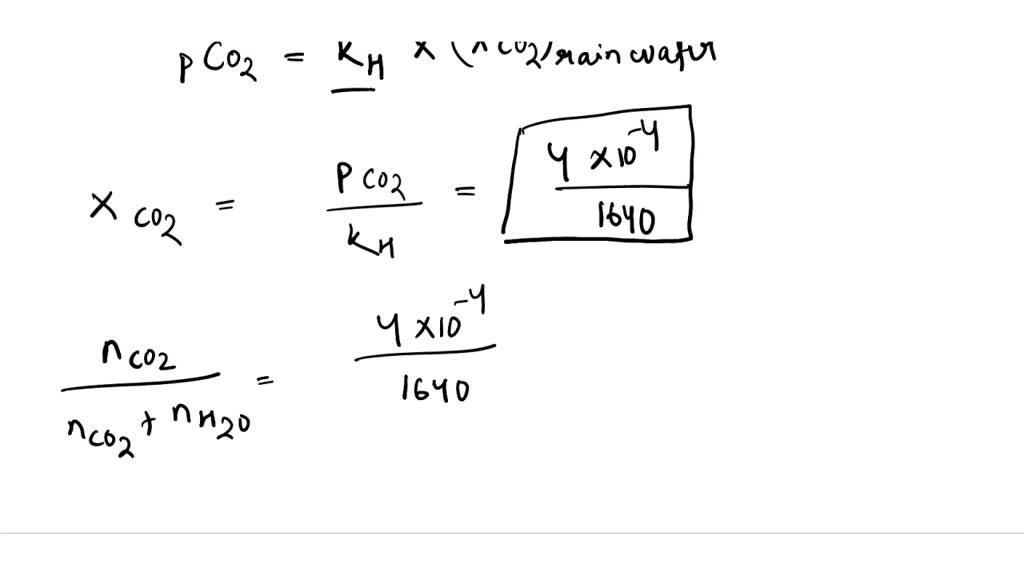 pCO2 = KH × (xCO2) rain water
XCO2 = PCO2 / KH = 4 ×10^-4 / 1640
nCO2 / nCO2 + nH2O = 4 ×10^-4 / 1640